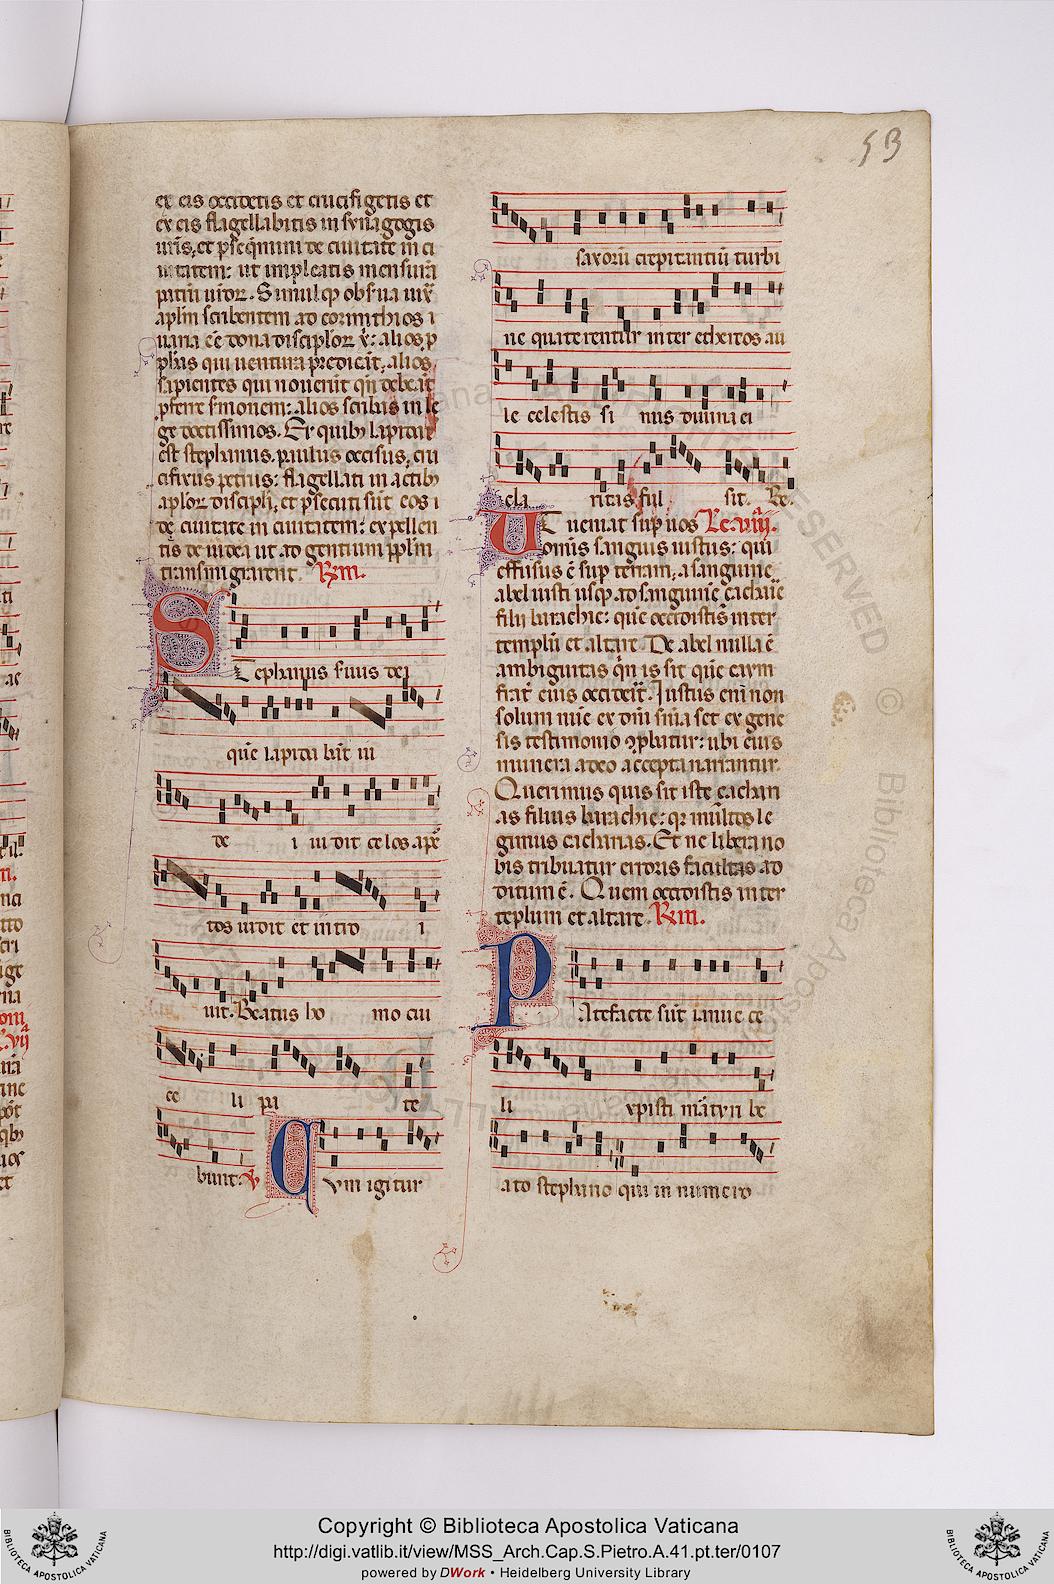 53
ex eis occidetis et crucifigetis et
ex eis flagellabitis in synagogis
uris, et psequimini de ciuitate in ci
uitatem: ut impleatis mensura
patru uror. Simulq obserua iux
aplm scribentem ad corinthios
uaria ee dona discipulor x: alios p
phas qui uentura predicat, alios
sapientes qui nouerit qn debeat
pferre smonem: alios scribas in le
ge doctissimos. Ex quib lapidat
est stephanus. paulus occisus, cru
cifixus petrus: flagellati in actib
aplor discipli, et psecuti sut eos
de ciuitate in ciuitatem: expellen
tes de iudea ut ad gentium pplm
transmigrarent. Rm.
Stephanus suus dei
que lapida bat iu
de i ui dit ce los apt
tos uidit et intro i
uit. Beatus ho mo cui
ce li pa te
bunt. V Cum igitur
saxoru crepitantiu turbi
ne quaterentur inter ethereos au
le celestis si nus diuina ei
cla ritas ful sit. Be.
Ut ueniat sup uos Lc. viij.
omis sanguis iustus: qui
effusus e sup terram, a sanguine
abel iusti usq ad sanguine zacharie
filii barachie: que occidistis inter
templu et altare. De abel nulla e
ambiguitas qn is sit que caym
frater eius occiderit. Justus eni non
solum nuc ex dni snia set ex gene
sis testimonio pbatur: ubi eius
munera a deo accepta narrantur.
Querimus quis sit iste zachari
as filius barachie: qr multos le
gimus zacharias. Et ne libera no
bis tribuatur erroris facultas ad
ditum e. Quem occidistis inter
teplum et altare. Rm.
Patefacte sut ianue ce
li xpisti martyri be
ato stephano qui in numero
Copyright © Biblioteca Apostolica Vaticana
http://digi.vatlib.it/view/MSS_Arch.Cap.S.Pietro.A.41.pt.ter/0107
powered by DWork • Heidelberg University Library
BIBLIOTECA APOSTOLICA VATICANA
BIBLIOTECA APOSTOLICA VATICANA